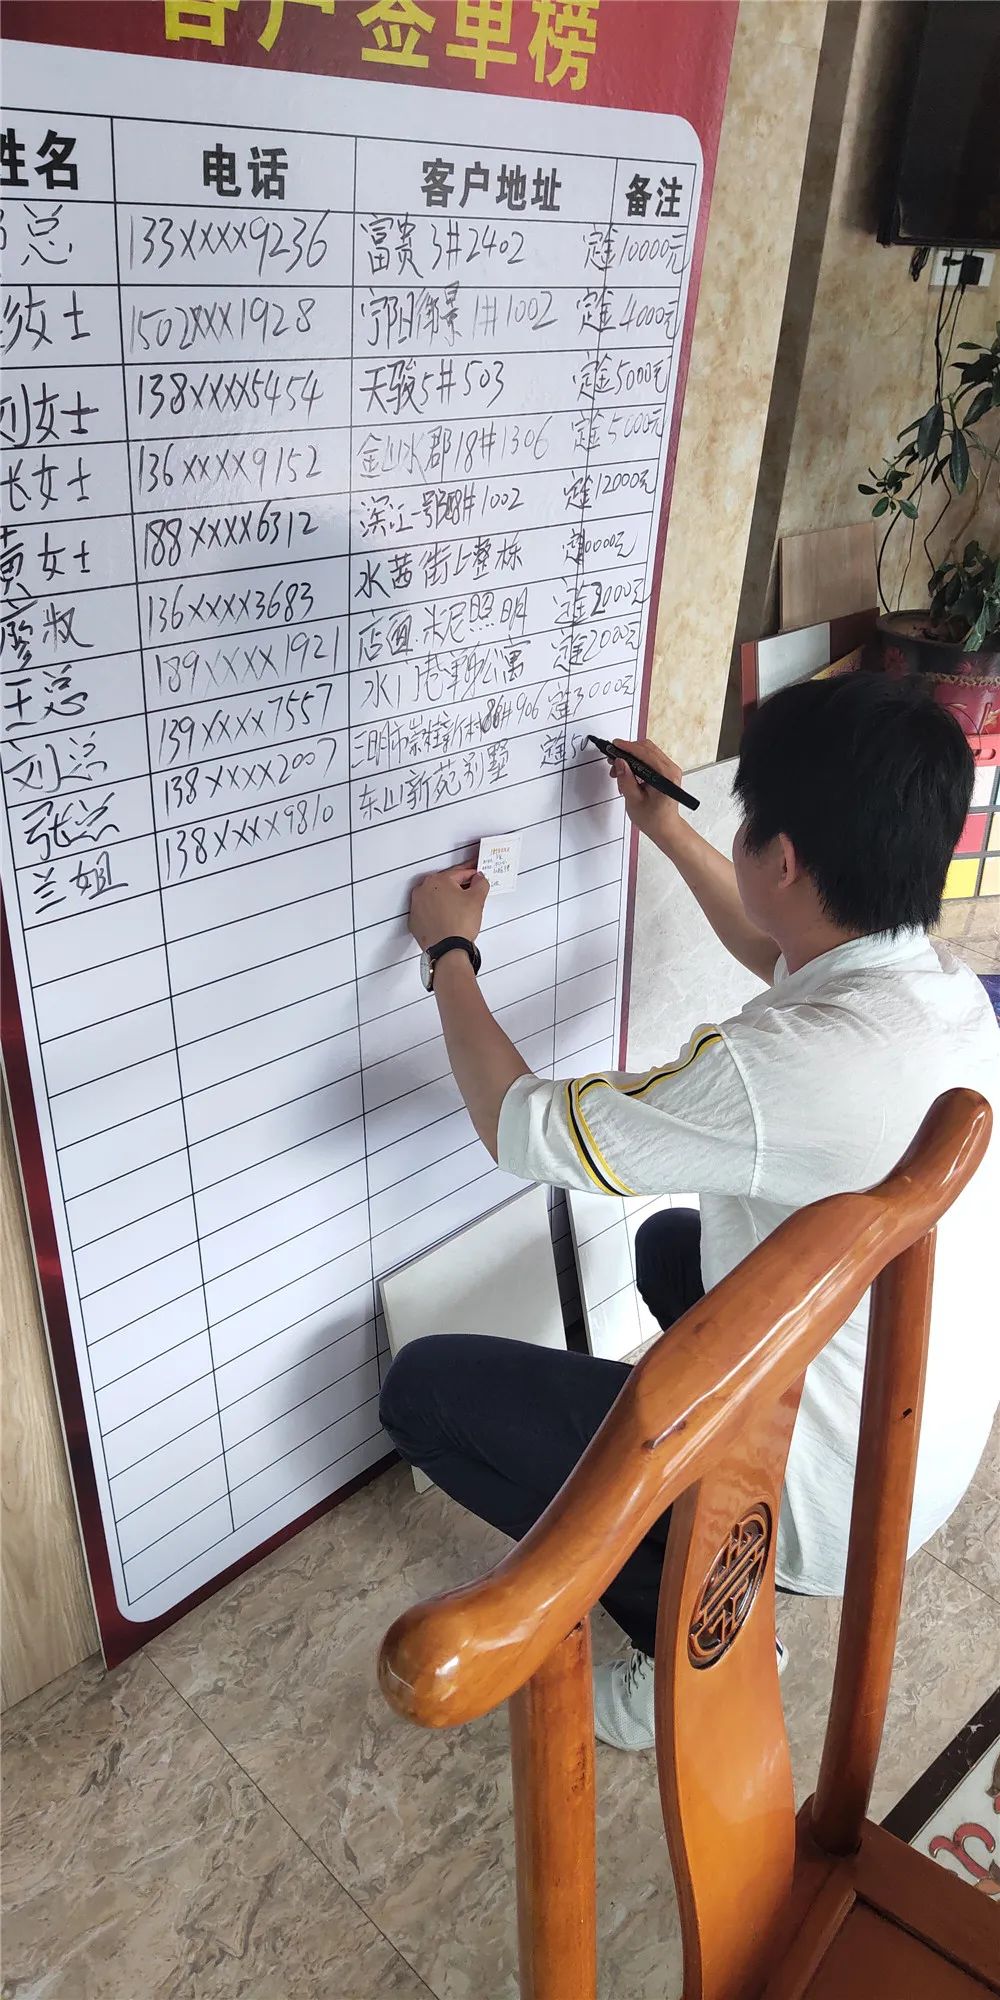 客户签单榜
姓名 电话 客户地址 备注
总 133XXXX9236 富贵3#2402 定金10000元
女士 1502XXX1928 宁阳御景1#1002 定金4000元
刘女士 138XXXX5454 天骏5#503 定金5000元
女士 136XXXX9152 金山水郡18#1306 定金5000元
黄女士 188XXXX6312 滨江一号#1002 定金12000元
廖叔 136XXXX3683 水茜街上整栋 定金元
王总 189XXXX1921 店面.米尼照明 定金2000元
刘总 139XXXX7557 水门巷单身公寓 定金2000元
张总 138XXXX2007 三明市新村#906 定金3000元
兰姐 138XXXX9810 东山新苑别墅 定金50